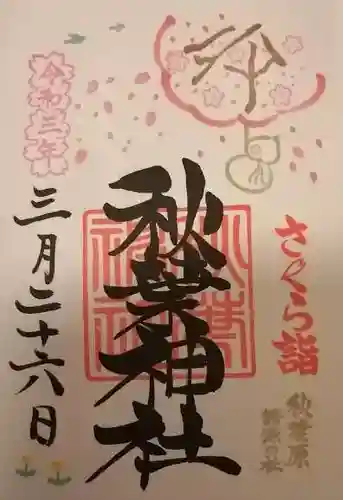 さくら詣
秋葉原
秋葉神社
令和三年
三月二十六日